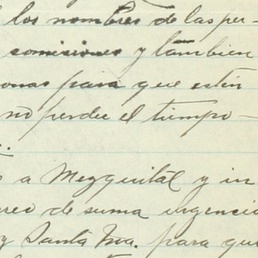 los nombres de las per-
comisiones y tambien
onas para que estén
no perder el tiempo -
a Mezquital y in
reo de suma urgencia
y Santa Iva. para que